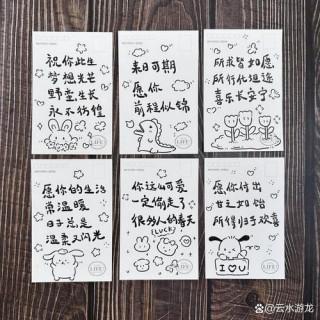 祝你此生
梦想光芒
野蛮生长
永不彷徨
来日可期
愿你
前程似锦
所求皆如愿
所行化坦途
喜乐长安宁
愿你的生活
常温暖
日子总是
温柔又闪光
LIFE
你这么可爱
一定偷走了
很多人的春天
(LUCK)
LIFE
愿你付出
甘之如饴
所得归于欢喜
I♡U
LIFE
@云水游龙